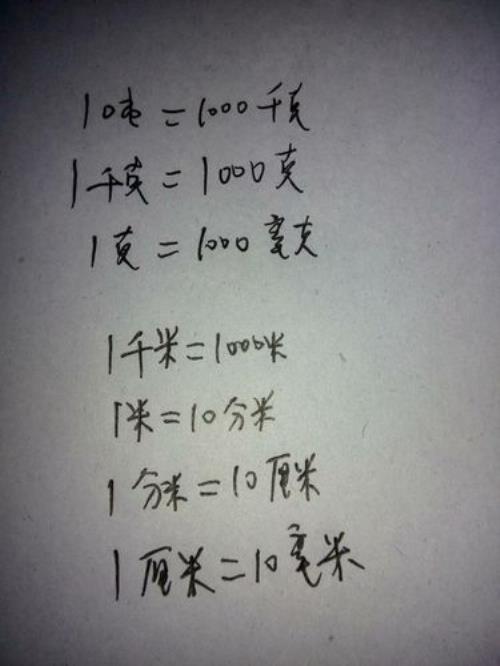 1吨=1000千克
1千克=1000克
1克=1000毫克
1千米=1000米
1米=10分米
1分米=10厘米
1厘米=10毫米